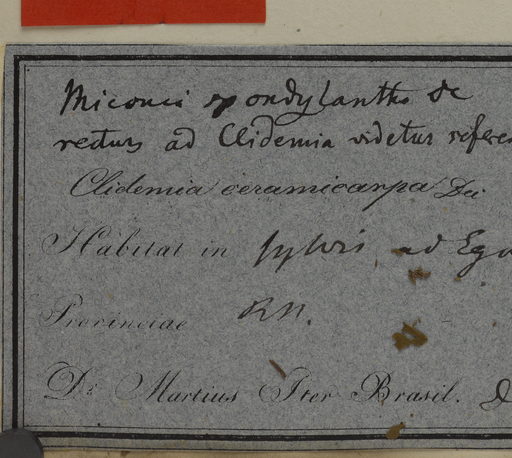 Miconia spondylantha Dc
rectius ad Clidemia videtur refere
Clidemia ceramicarpa Dc
Habitat in sylvis ad Ega
Provinciae R.N.
Dr. Martius Iter Brasil. &